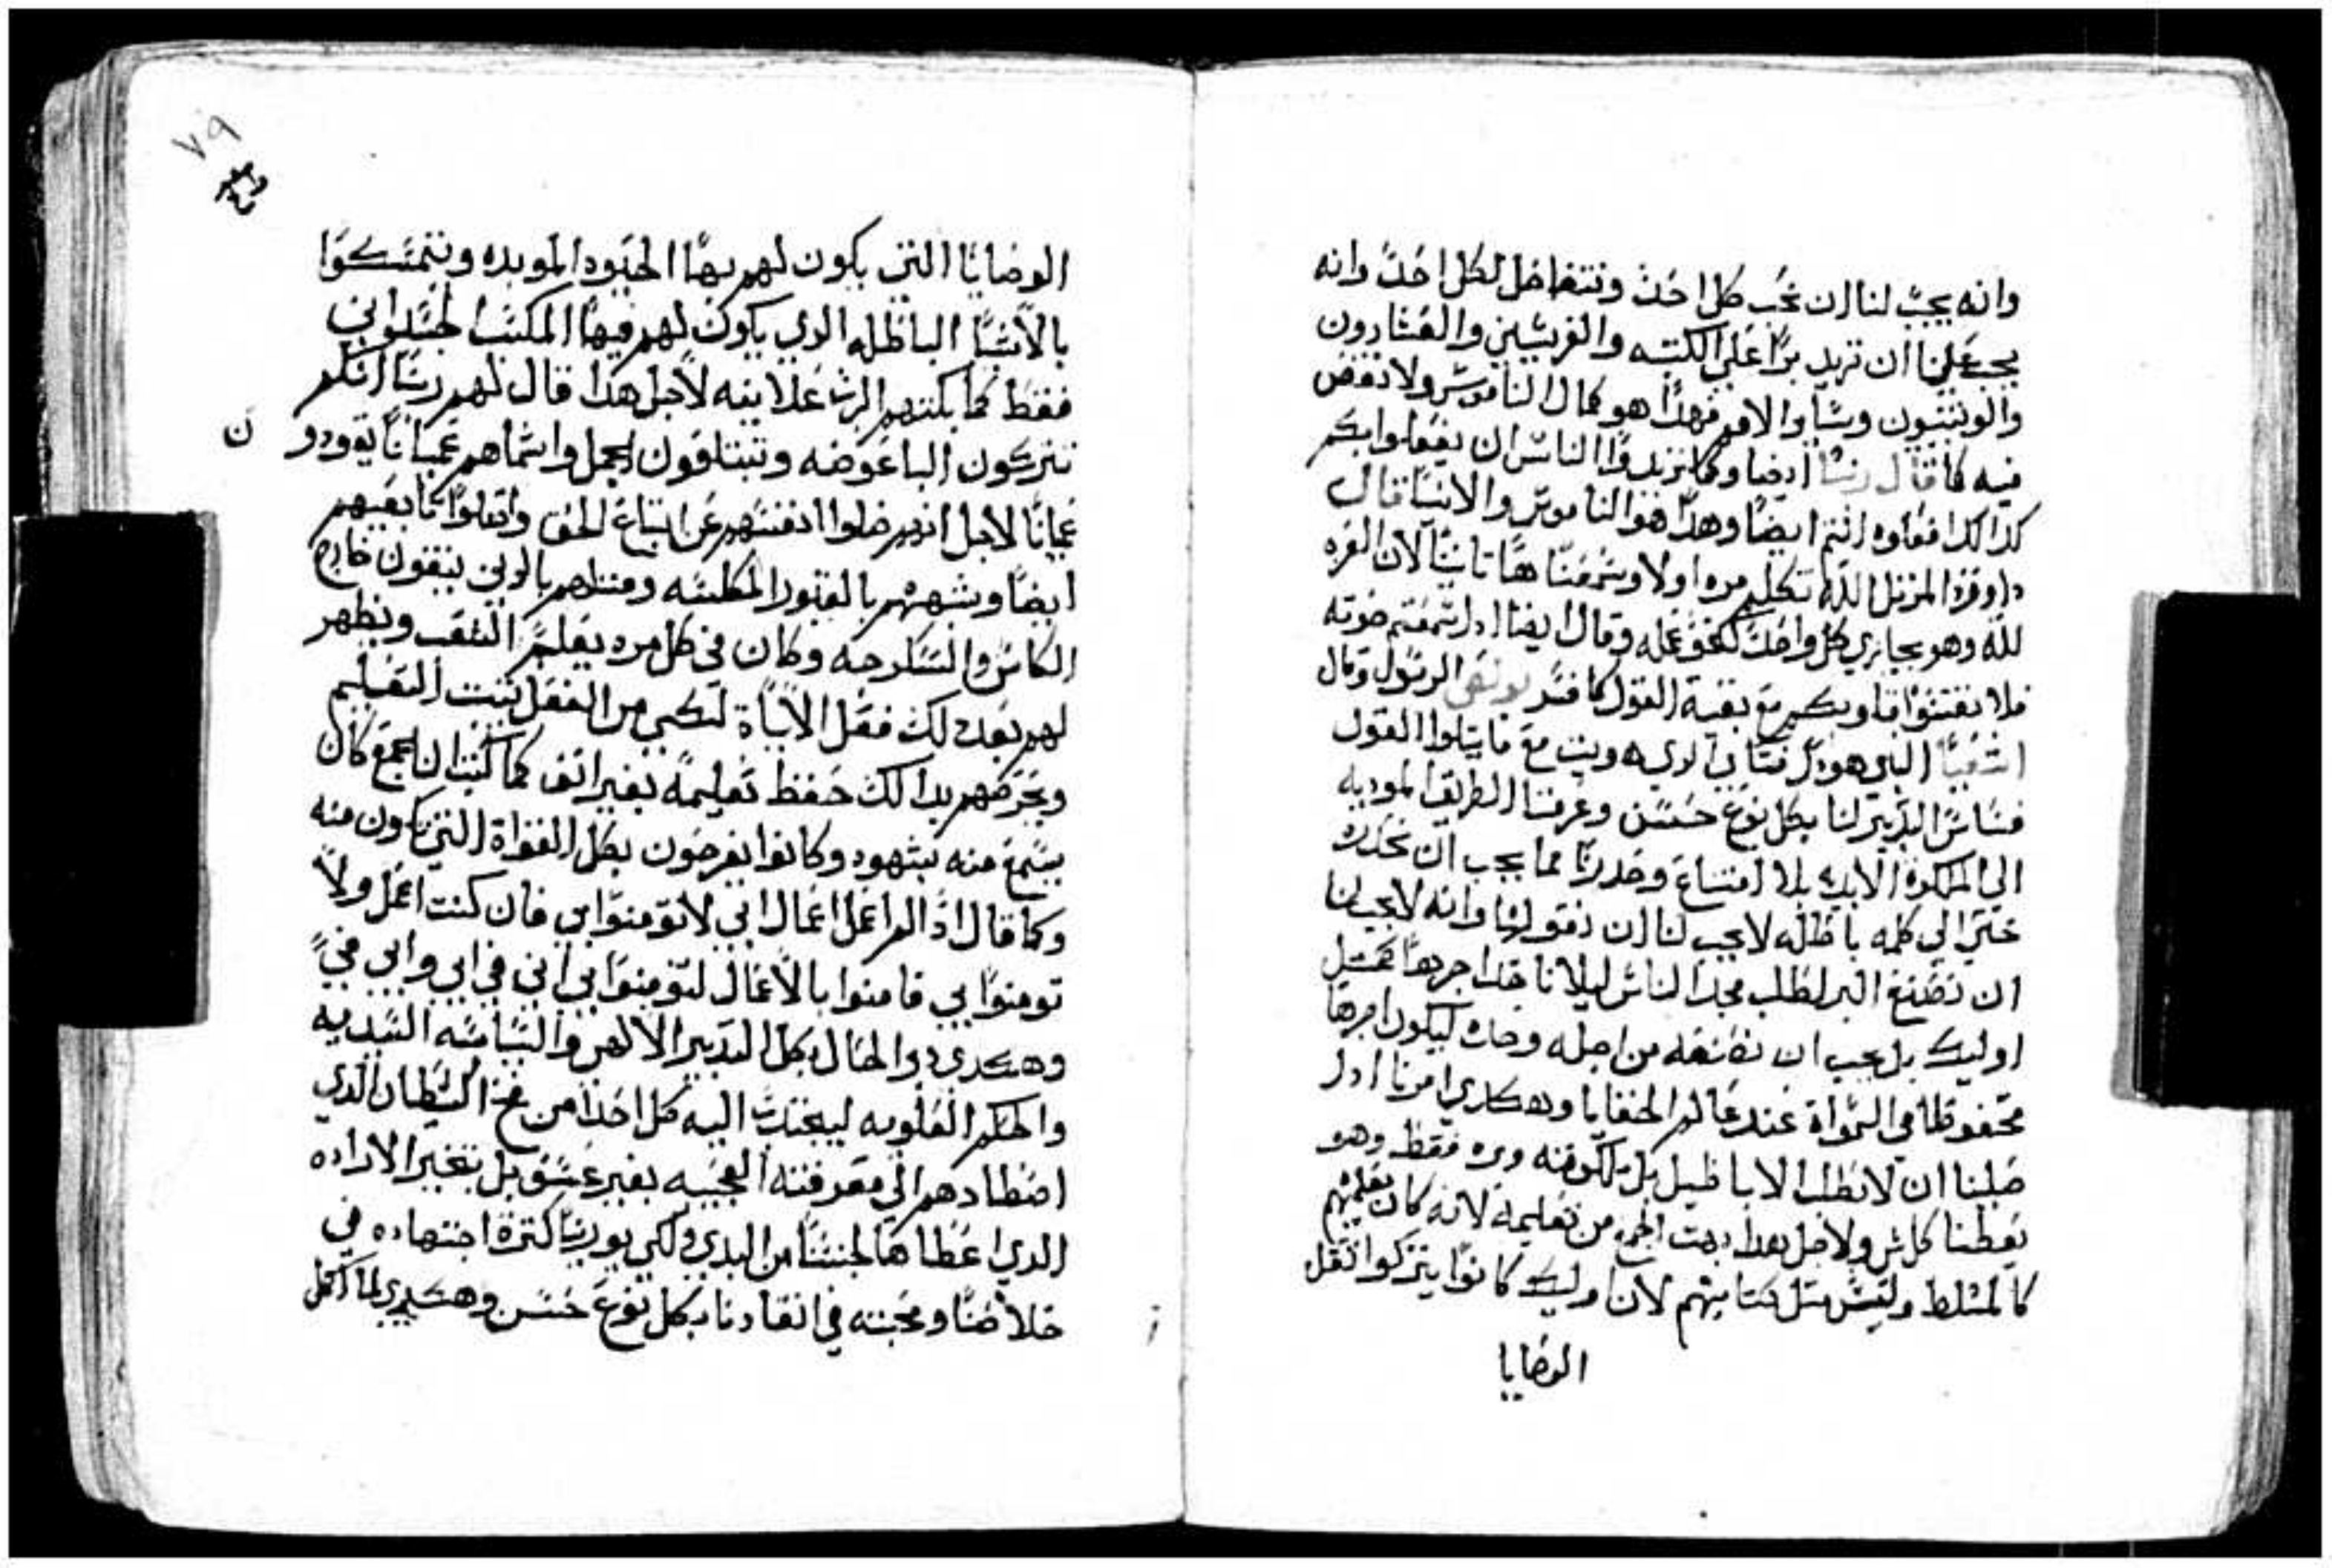 وانه يجب لنا ان نحب كل احد ونتفاضل لكل احد وانه
يجب علينا ان نزيد برا على الكتبه والفريسين والعشارون
والوتنيون وساير الامم فهذا هو كمال الناموس ولا نقض
فيه كما قال ربنا ايضا وكما تريدوا الناس ان يفعلوا بكم
كدالك افعلوه انتم ايضا وهدا هو الناموس والانبيا قال
داوود المرتل الله تكلم مره اولا وسمعنا هما تانيتا لان العزه
لله وهو يجازي كل واحد كنحو عمله وقال ايضا ادا سمعتم صوته
فلا تقسوا قلوبكم مع بقية القول كما فسر بولس الرسول وقال
اشعيا النبي هودا فتاي الدي هويت مع ما يتلوا القول
فساس التدبير لنا بكل نوع حسن وعرفنا الطريق الموديه
الي الملكوة الابديه بلا امتناع وحدرنا مما يجب ان نحدره
حتي الي كلمه باطله لا يجب لنا ان نقولها وانه لا يجب لنا
ان نصنع البر لطلب مجد الناس ليلا ناخد اجرها كمتل
اوليك بل يجب ان نصنعه من اجله وحده ليكون اجرها
محفوظا في السمواة عند عالم الخفايا وهكدي امرنا ادا
صلينا ان لا نطلب الاباطيل بل ملكوته وبره فقط وهو
يعطينا كل شي ولاجل هدا بهت الجمع من تعليمه لانه كان يعلمهم
كالمسلط وليس متل كتابهم لان اوليك كانوا يتركوا تقل
الوصايا
٧٩
الوصايا التي يكون لهم بها الحيوه الموبده ويتمسكوا
بالاشيا الباطله الدي يكون لهم فيها المكسب الجسداني
فقط كما بكتهم الرب علانيه لاجل هدا قال لهم ربنا انكم
تتركون الباعوضه وتبتلعون الجمل واسماهم عميانا يقودو ن
عميانا لاجل انهم ضلوا انفسهم عن اتباع الحق
ايضا وشبههم بالقبور المكلسه ومتلهم بالدين ينقون خارج
الكاس والسكرجه وكان في كل مره يعلم الشعب ويظهر
لهم بعد دلك فعل الاياة لكي من الفعل يتبت التعليم
ويحرضهم بدالك حفظ تعليمه بغير انف كما كتب ان الجمع كان
يسمع منه بشهوه وكانوا يفرحون بكل القواة التي تكون منه
وكما قال ادا لم اعمل اعمال ابي لا تومنوا بي فان كنت اعمل ولا
تومنوا بي فامنوا بالاعمال لتومنوا بي اني في ابي وابي في
وهكدي دبر الحال بكل التدبير الالهي والسياسه السيديه
والحكم العلويه ليجتدب اليه كل احد من فخ الشيطان الدي
اصطادهم الي معرفته العجيبه بغير عسف بل بتخير الاراده
الدي اعطاها لجنسنا من البدي ولكي يورينا كترة اجتهاده في
خلاصنا ومحبته في انقادنا بكل نوع حسن وهكدي لما اكمل